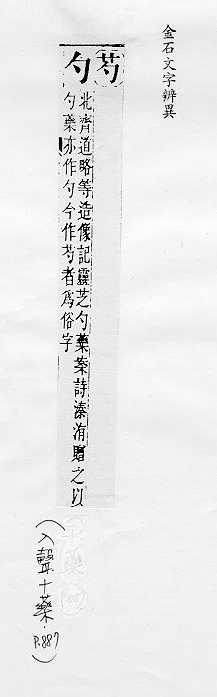 金石文字辨異
芍
勺
北齊道略等造像記靈芝勺藥案詩溱洧贈之以
勺藥亦作勺今作芍者爲俗字
(入聲十藥.P.887)